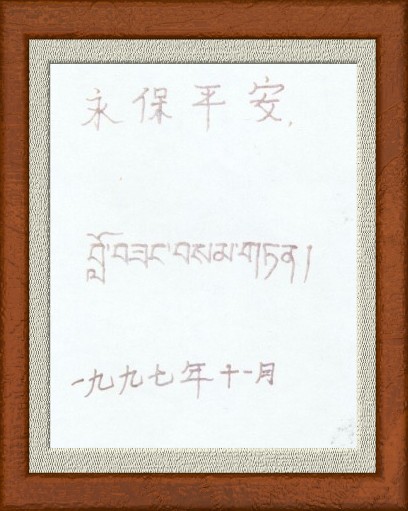 永保平安.
བློ་བཟང་བསམ་གཏན།
一九九七年十一月